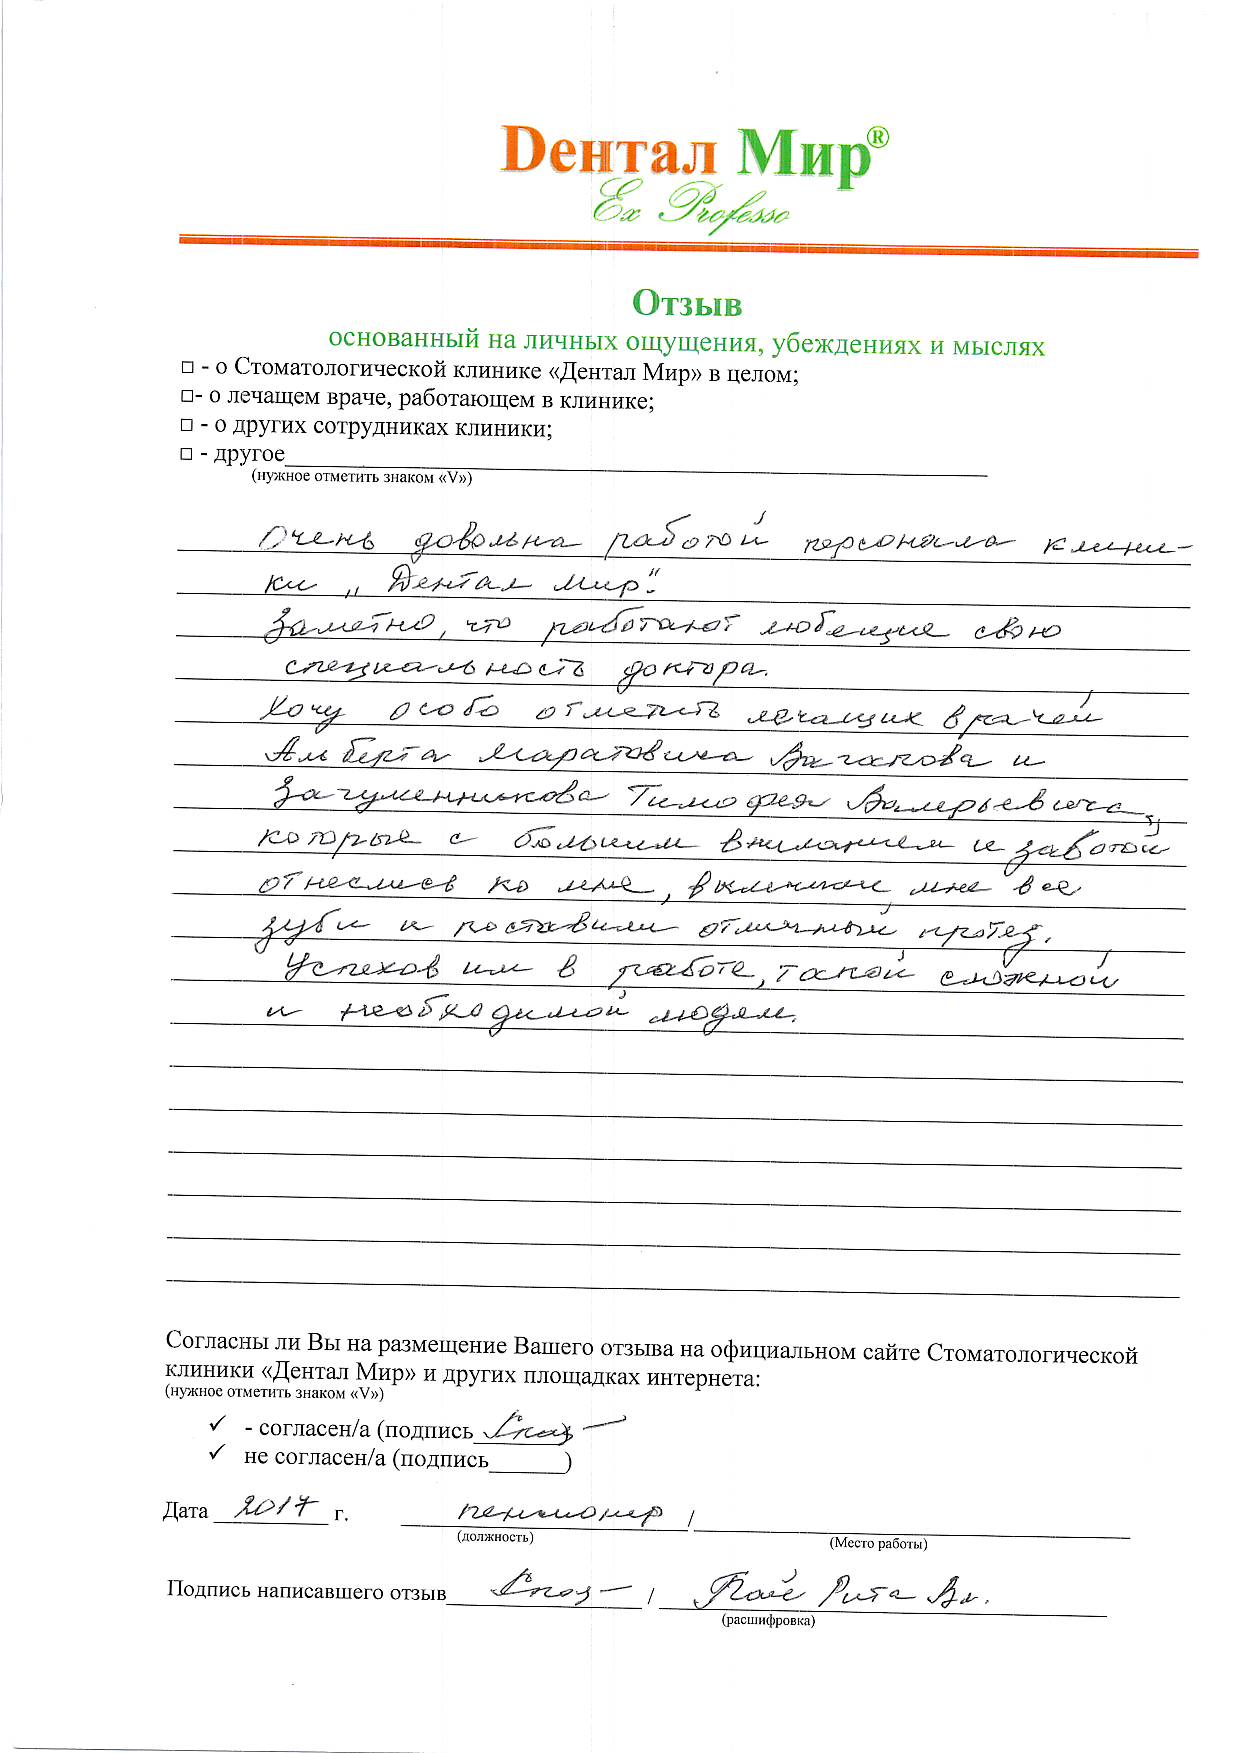 Dентал Мир®
Ex Professo
Отзыв
основанный на личных ощущения, убеждениях и мыслях
□ - о Стоматологической клинике «Дентал Мир» в целом;
□- о лечащем враче, работающем в клинике;
□ - о других сотрудниках клиники;
□ - другое
(нужное отметить знаком «V»)
Очень довольна работой персонала клини-
ки „Дентал Мир".
Заметно, что работают любящие свою
специальность доктора.
Хочу особо отметить лечащих врачей
Альберта Маратовича Вагапова и
Загуменникова Тимофея Валерьевича,
которые с большим вниманием и заботой
отнеслись ко мне, вылечили мне все
зубы и поставили отличный протез.
Успехов им в работе, такой сложной
и необходимой людям.
Согласны ли Вы на размещение Вашего отзыва на официальном сайте Стоматологической
клиники «Дентал Мир» и других площадках интернета:
(нужное отметить знаком «V»)
✓ - согласен/а (подпись
✓ не согласен/а (подпись______)
Дата 2017 г. пенсионер /
(должность) (Место работы)
Подпись написавшего отзыв / Рита Вл.
(расшифровка)